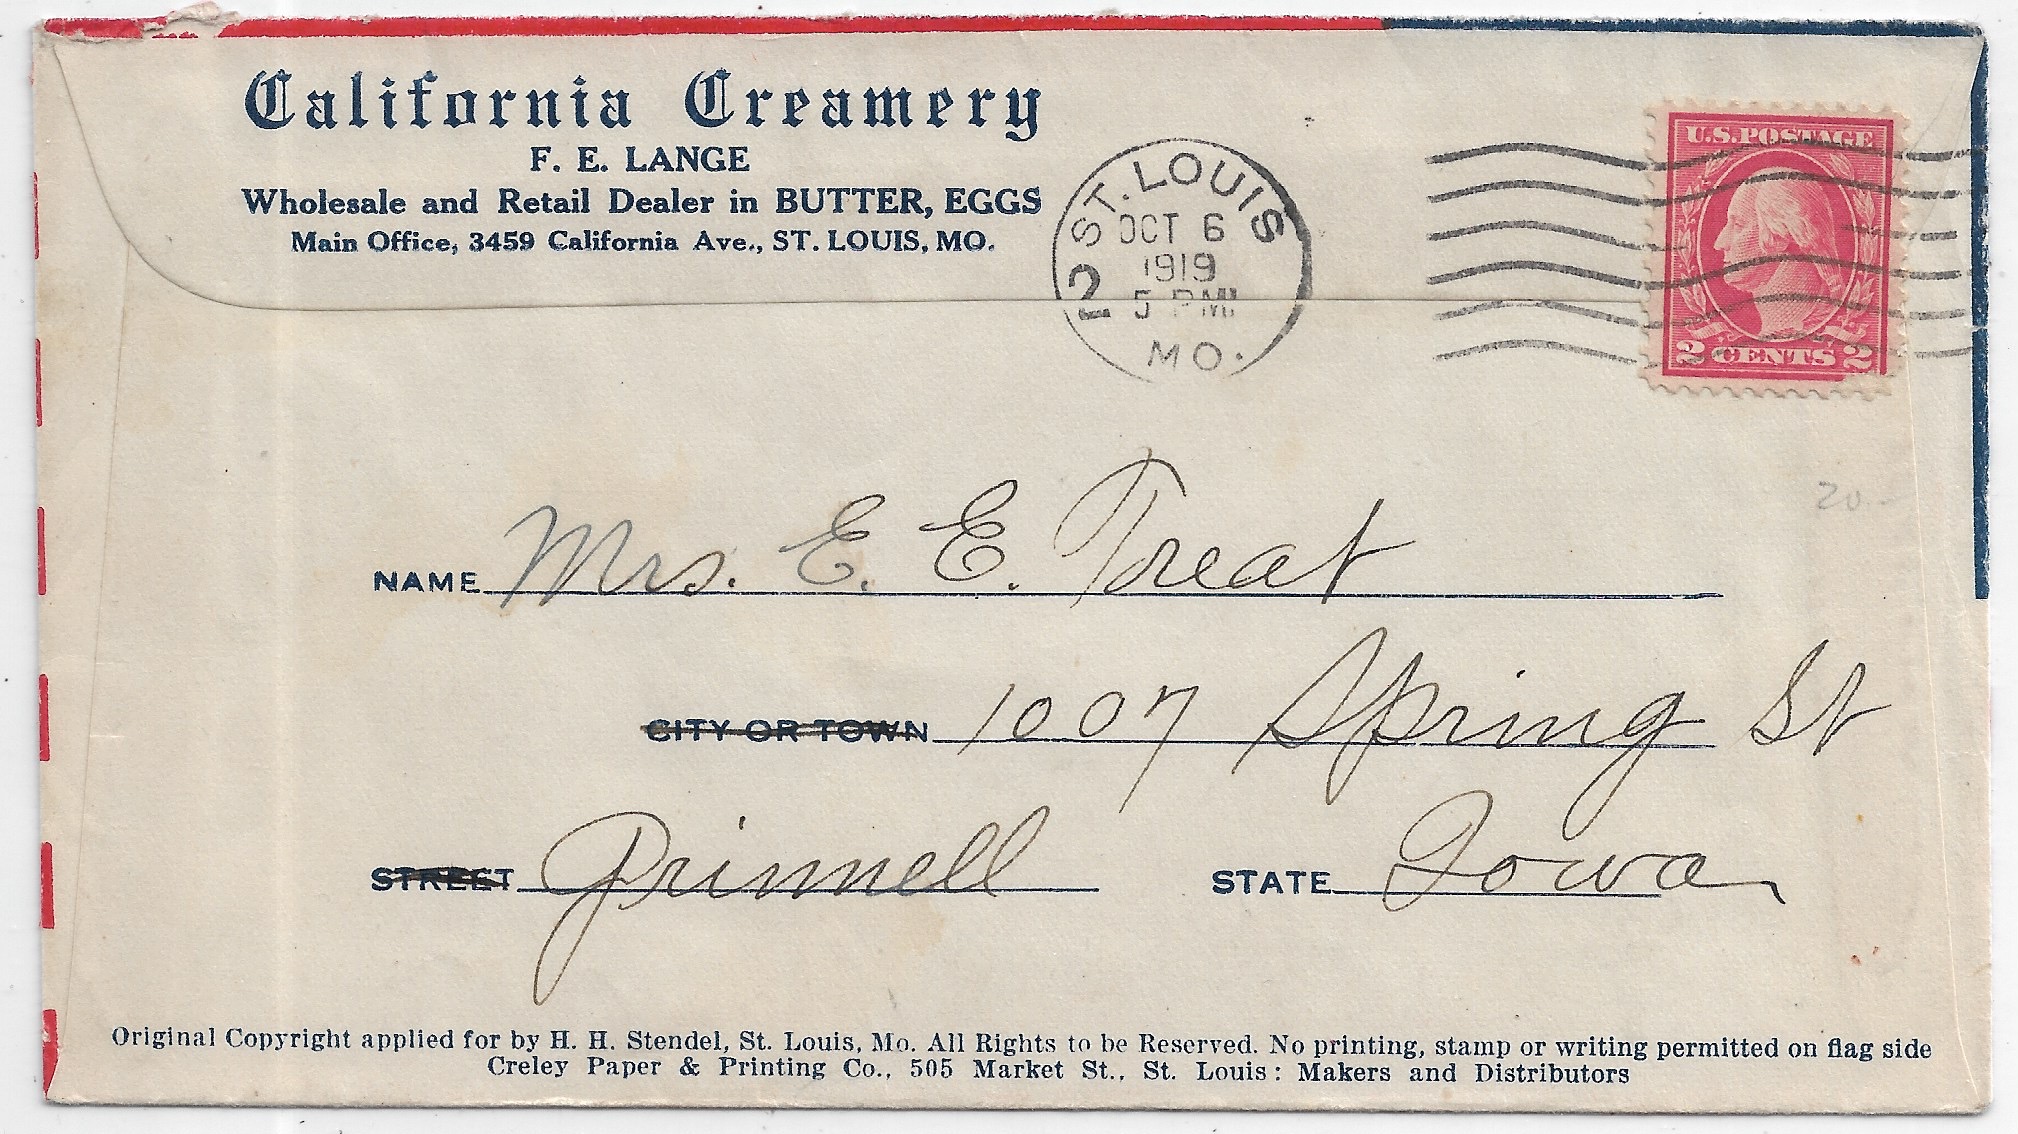 California Creamery
F. E. LANGE
Wholesale and Retail Dealer in BUTTER, EGGS
Main Office, 3459 California Ave., ST. LOUIS, MO.
ST. LOUIS
OCT 6
1919
5 PM
2
MO.
U.S. POSTAGE
2 CENTS 2
20.-
NAME Mrs. E. E. Treat
CITY OR TOWN 1007 Spring St
STREET Grinnell STATE Iowa
Original Copyright applied for by H. H. Stendel, St. Louis, Mo. All Rights to be Reserved. No printing, stamp or writing permitted on flag side
Creley Paper & Printing Co., 505 Market St., St. Louis: Makers and Distributors